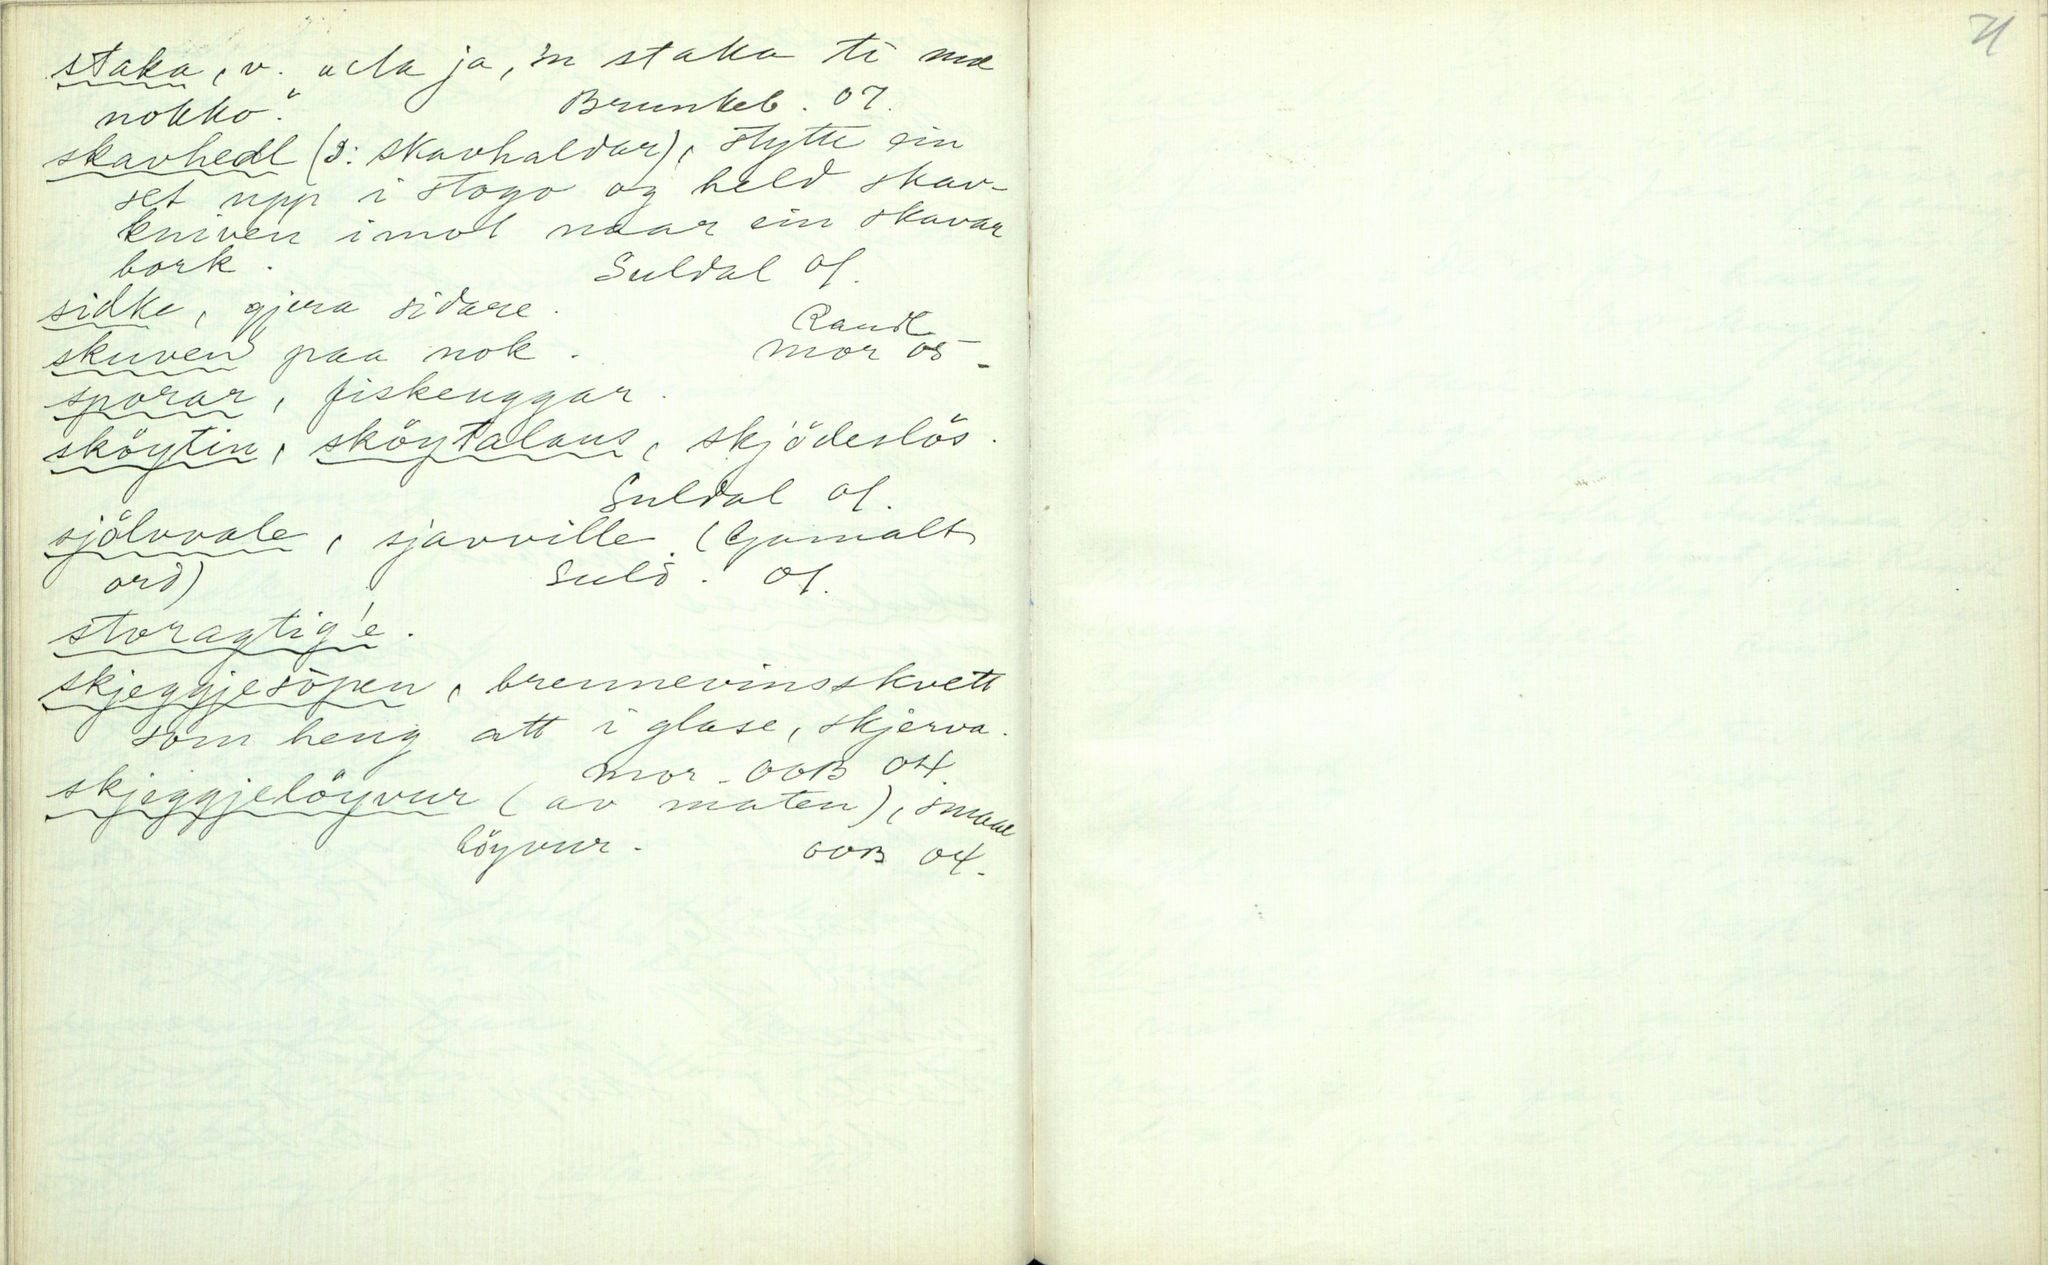 staka, v. "Ja ja, 'n staka ti mæ
nokko."
Brunkeb. 07.
skavhedl (ɔ: skavhaldar), stytte ein
set upp i stogo og held skav-
kniven imot naar ein skavar
bork.
Suldal 01.
sidke, gjera sidare.
Raudl
skuven paa nok.
mor 05.
sporar, fiskeuggar.
sköytin, sköytalaus, skjödeslös.
Suldal 01.
sjölvvale, sjavville. (Gamalt
ord)
Suld. 01.
storagtig'e.
skjeggjesöpen, brennevinsskvett
som heng att i glase, skjerva.
mor. OOB 04.
skjeggjelöyvur (av maten), smaae
löyvur.
OOB 04.
71